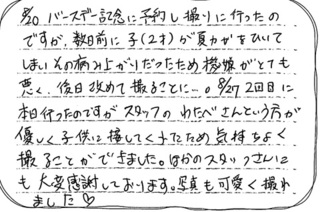 8/20 バースデー記念に予約し撮りに行ったの
ですが、数日前に子(2才)が夏カゼをひいて
しまいその病み上がりだったため機嫌がとても
悪く、後日改めて撮ることに…。8/27 2回目に
本日行ったのですがスタッフのわたべさんという方が
優しく子供に接してくれたため気持ちよく
撮ることができました。ほかのスタッフさんに
も大変感謝しております。写真も可愛く撮れ
ました♡